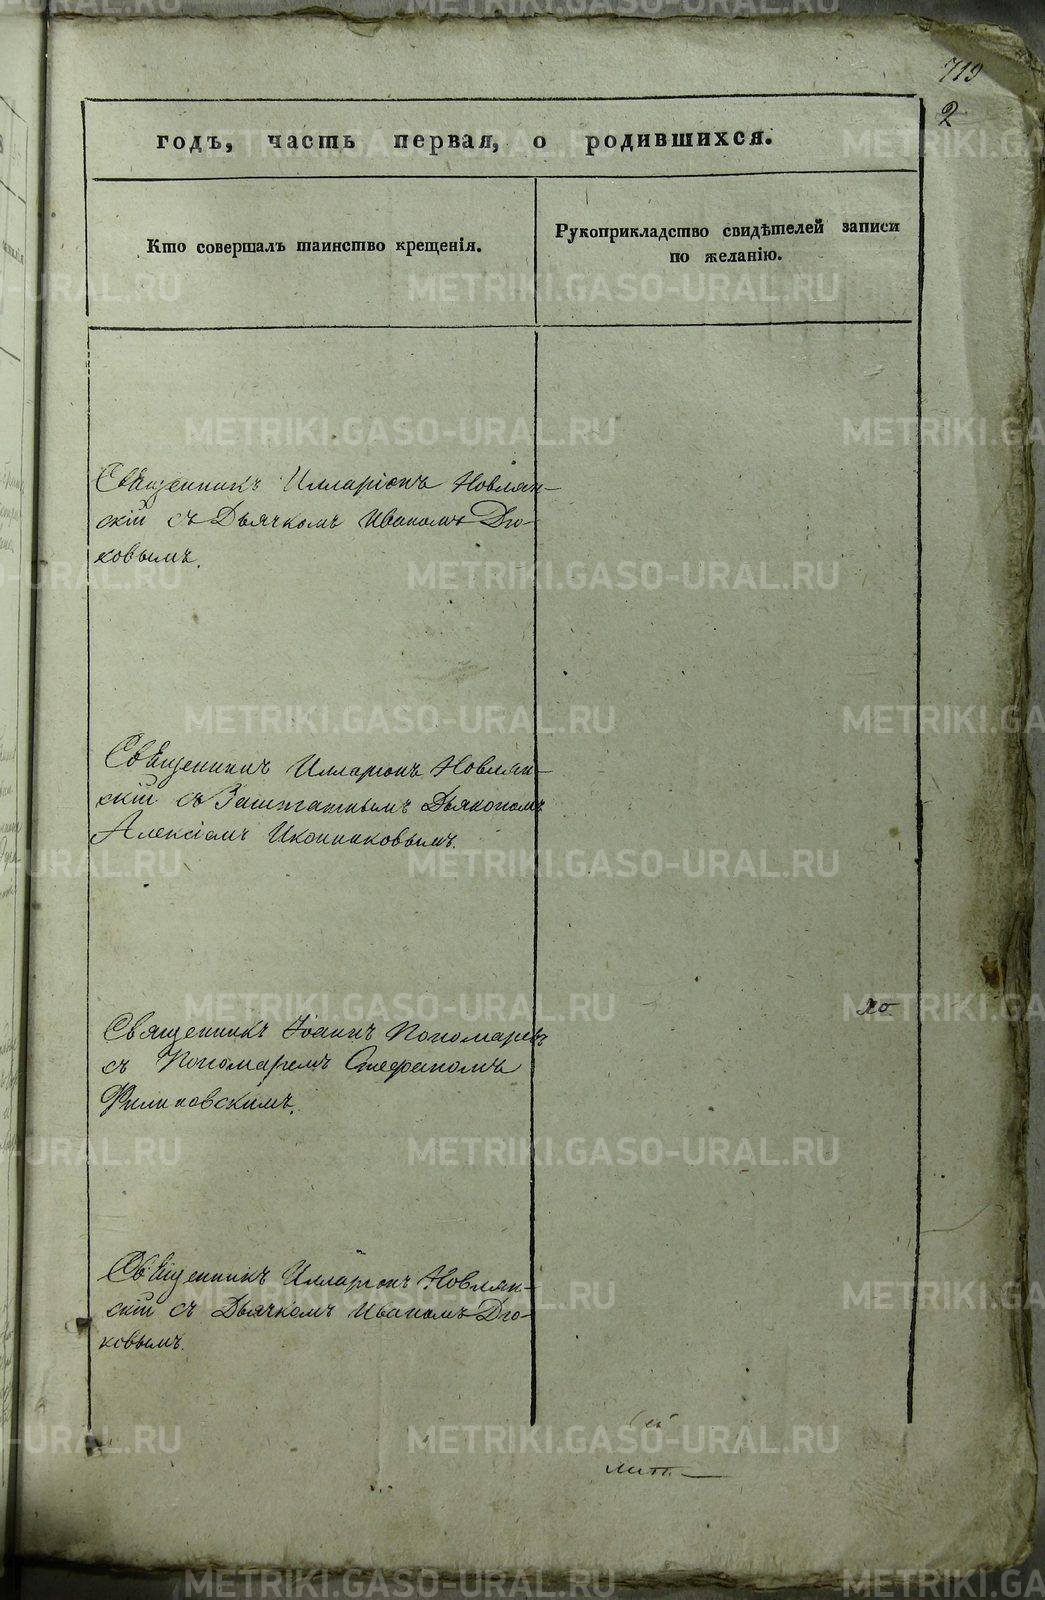 719
2
годъ, часть первая, о родившихся.
Кто совершалъ таинство крещенія.
Рукоприкладство свидѣтелей записи
по желанію.
Священникъ Илларіонъ Новлян-
скій съ Дьячкомъ Иваномъ Дю-
ковымъ.
Священникъ Илларіонъ Новлян-
скій съ Заштатнымъ Дьякономъ
Алексіемъ Иконниковымъ.
Священникъ Іоаннъ Пономаревъ
съ Пономаремъ Стефаномъ
Филиповскимъ.
Священникъ Илларіонъ Новлян-
скій съ Дьячкомъ Иваномъ Дю-
ковымъ.
METRIKI.GASO-URAL.RU